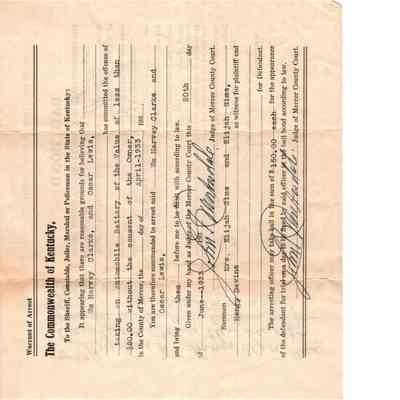 Warrant of Arrest
The Commonwealth of Kentucky,
To the Sheriff, Constable, Jailer, Marshal or Policeman in the State of Kentucky:
It appearing that there are reasonable grounds for believing that
Wm Harvey Clarke, and Oscar Lewis,
has committed the offense of
taking an Automobile Battery of the Value of less than
$20.00 without the consent of the Owner,
in the County of Mercer, on the day of April-1933
You are therefore commanded to arrest said Wm Harvey Clarke and
Oscar Lewis,
and bring them before me to be dealt with according to law.
Given under my hand as Judge of the Mercer County Court, this 20th day
of June--1933
Judge of Mercer County Court.
Summon Mrs. Elijah Sims and Elijah Sims,
Henry Devine as witness for plaintiff and
for Defendant.
The arresting officer may take bail in the sum of $150.00 each for the appearance
of the defendant for trial by said officer in the bail bond according to law.
Judge of Mercer County Court.